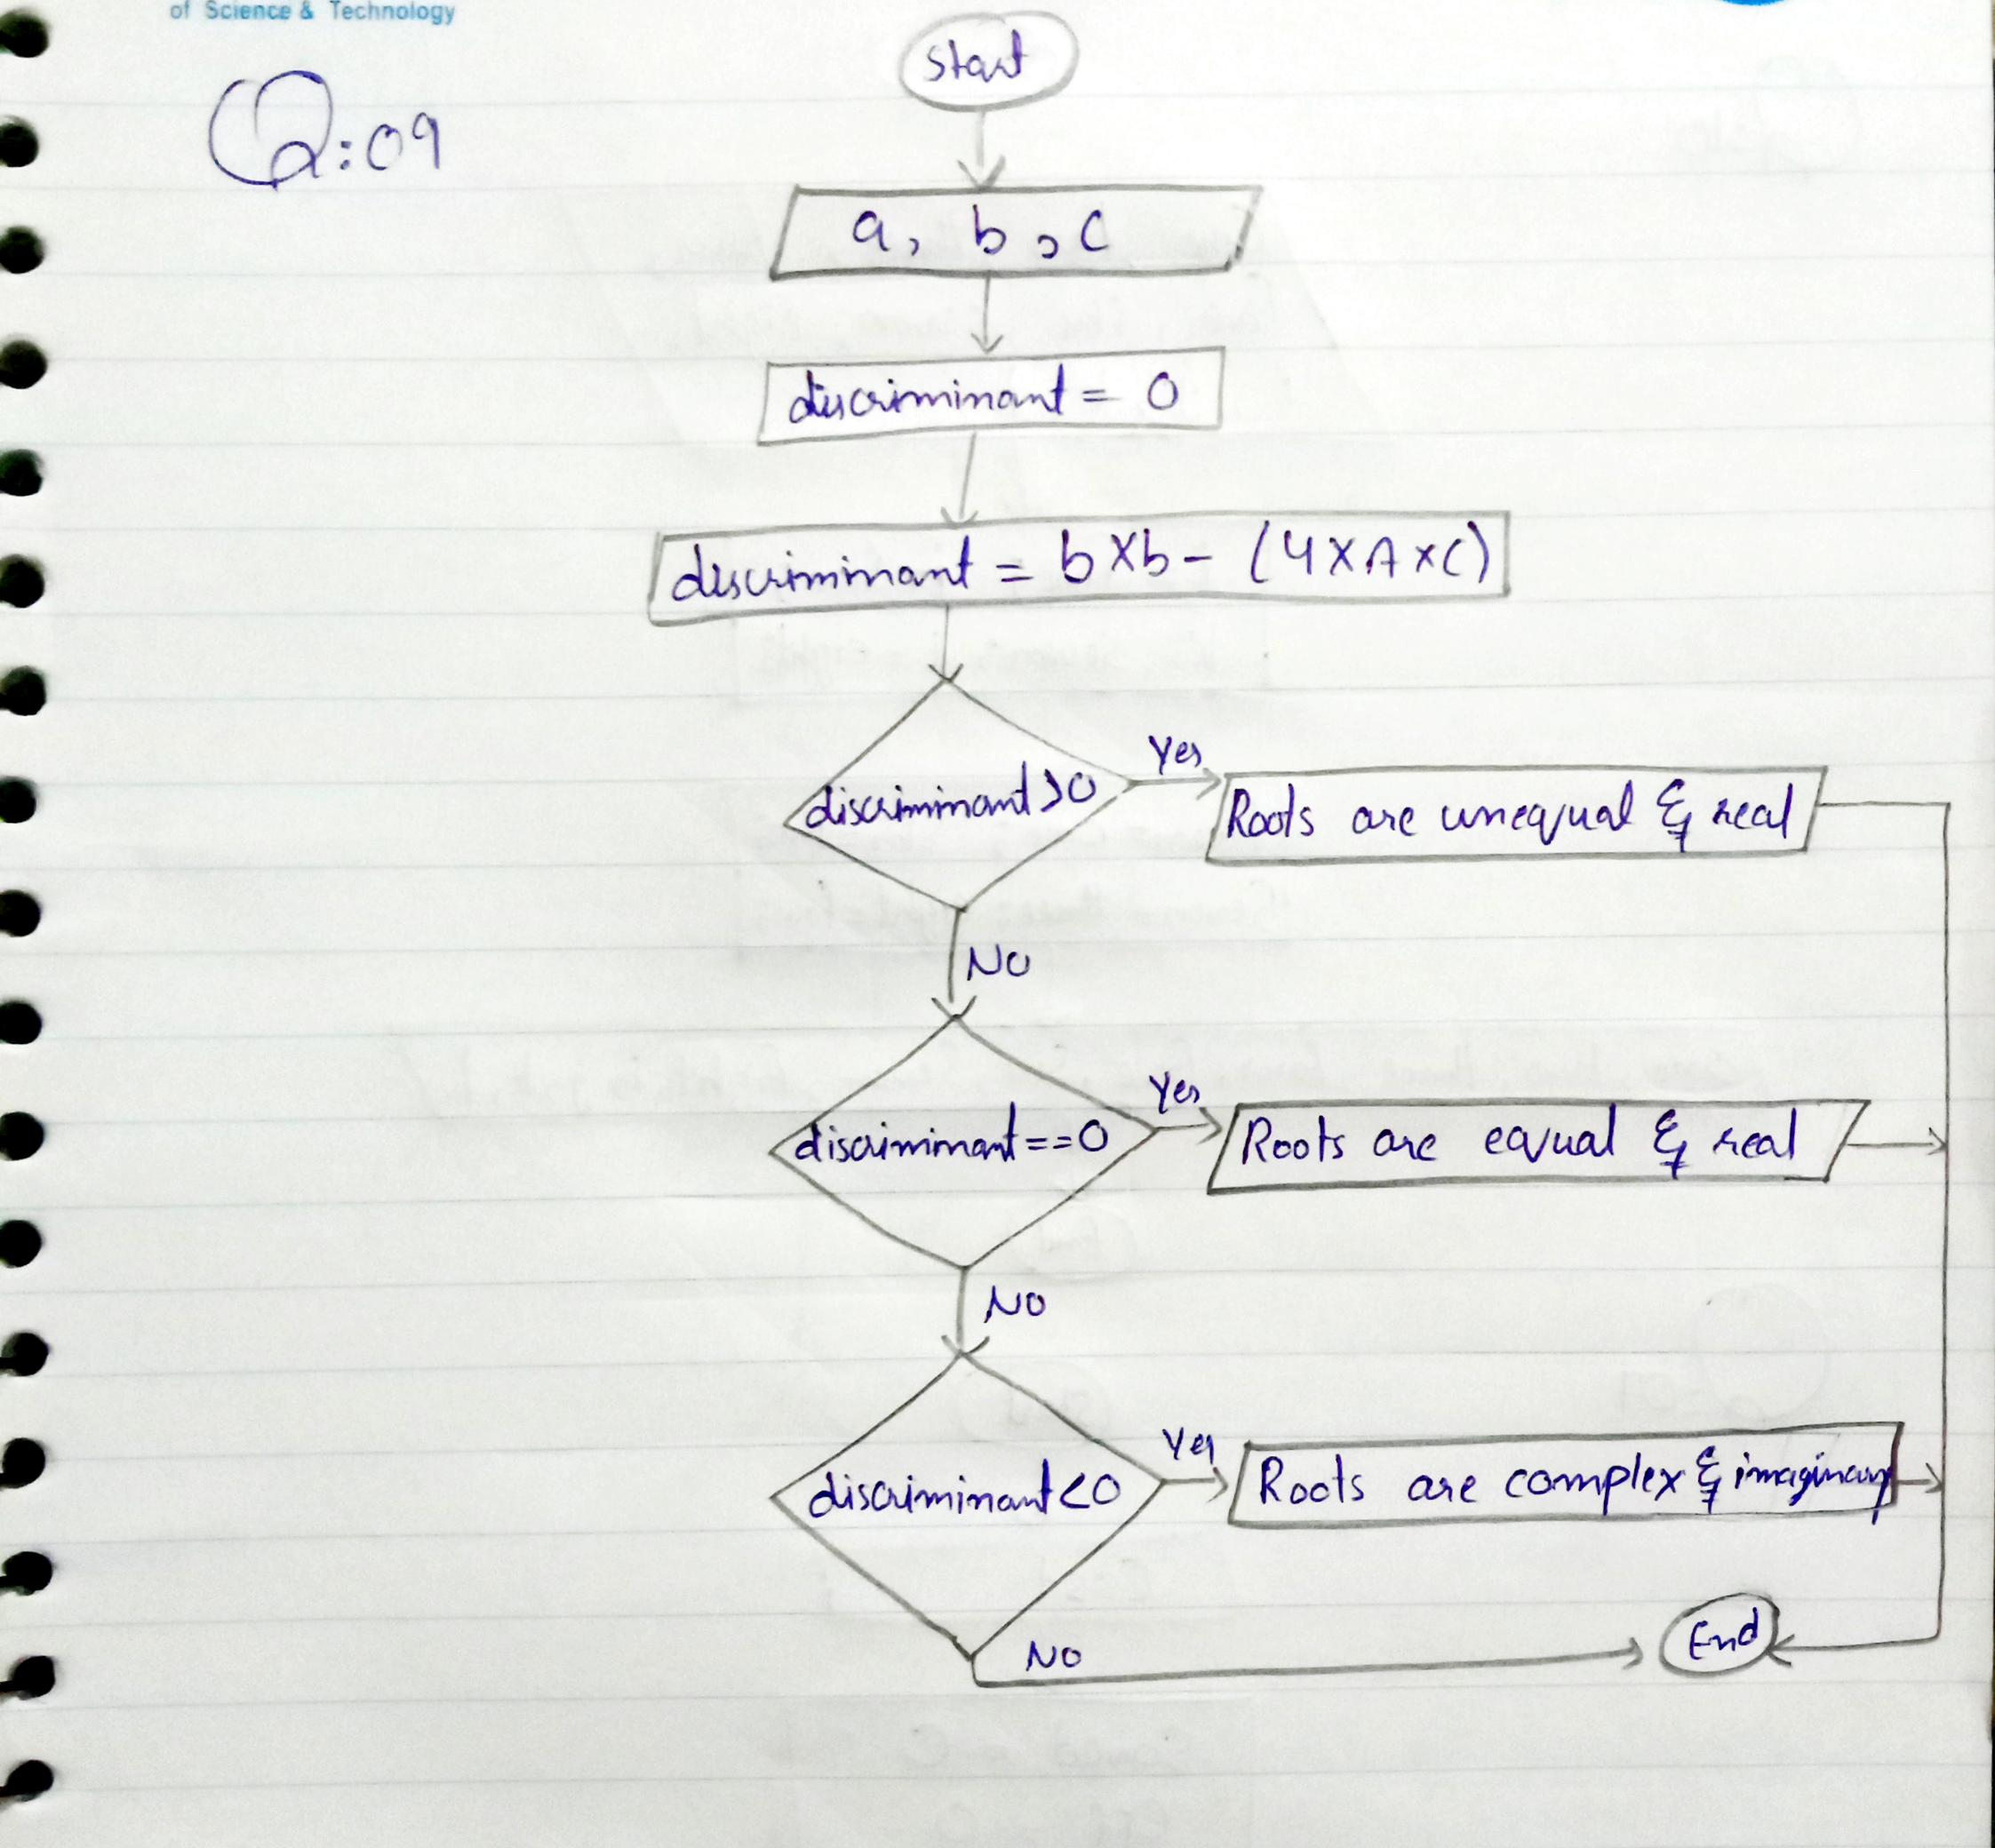 of Science & Technology
Q:09
Start
a, b, c
discriminant = 0
discriminant = b×b - (4×A×C)
discriminant>0
Yes
Roots are unequal & real
No
discriminant==0
Yes
Roots are equal & real
No
discriminant<0
Yes
Roots are complex & imaginary
No
End